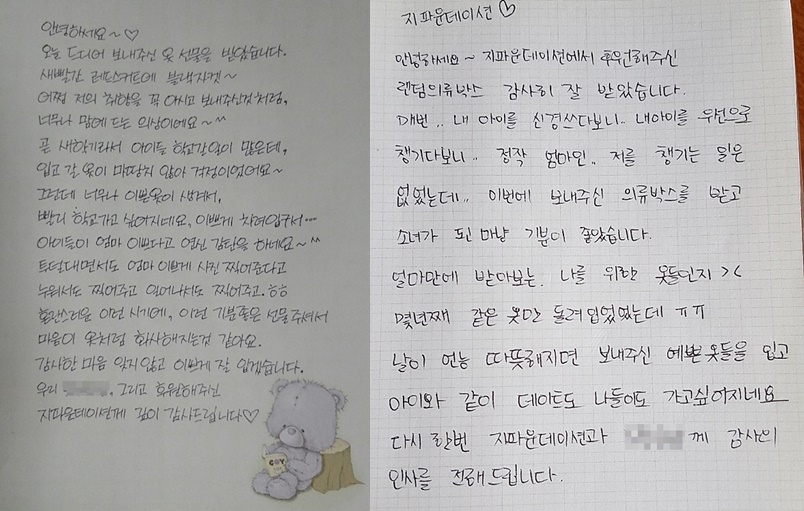 안녕하세요~♡
오늘 드디어 보내주신 옷 선물을 받았습니다.
새빨간 레드스커트에 블랙자켓~
어쩜 저의 취향을 꼭 아시고 보내주신것처럼,
너무나 맘에 드는 의상이에요~^^
곧 새학기라서 아이들 학교갈일이 많은데,
입고 갈 옷이 마땅치 않아 걱정이었어요~
그런데 너무나 이쁜옷이 생겨서,
빨리 학교가고 싶어지네요, 이쁘게 차려입구서…
아이들이 엄마 이쁘다고 연신 감탄을 하네요~^^
투덜대면서도 엄마 이쁘게 사진 찍어준다고
누워서도 찍어주고 일어나서도 찍어주고.ㅎㅎ
혼란스러운 이런 시기에, 이런 기분좋은 선물주셔서
마음이 옷처럼 화사해지는것 같아요.
감사한 마음 잊지않고 이쁘게 잘 입겠습니다.
우리 , 그리고 후원해주신
지파운데이션께 깊이 감사드립니다♡
COY
지파운데이션♡
안녕하세요~ 지파운데이션에서 후원해주신
랜덤의류박스 감사히 잘 받았습니다.
매번.. 내 아이를 신경쓰다보니.. 내아이를 우선으로
챙기다보니.. 정작 엄마인.. 저를 챙기는 일은
없었는데.. 이번에 보내주신 의류박스를 받고
소녀가 된 마냥 기분이 좋았습니다.
얼마만에 받아보는 나를 위한 옷들인지 ><
몇년째 같은 옷만 돌려입었었는데 ㅠㅠ
날이 언능 따뜻해지면 보내주신 예쁜옷들을 입고
아이와 같이 데이트도 나들이도 가고싶어지네요
다시한번 지파운데이션과 께 감사의
인사를 전해드립니다.